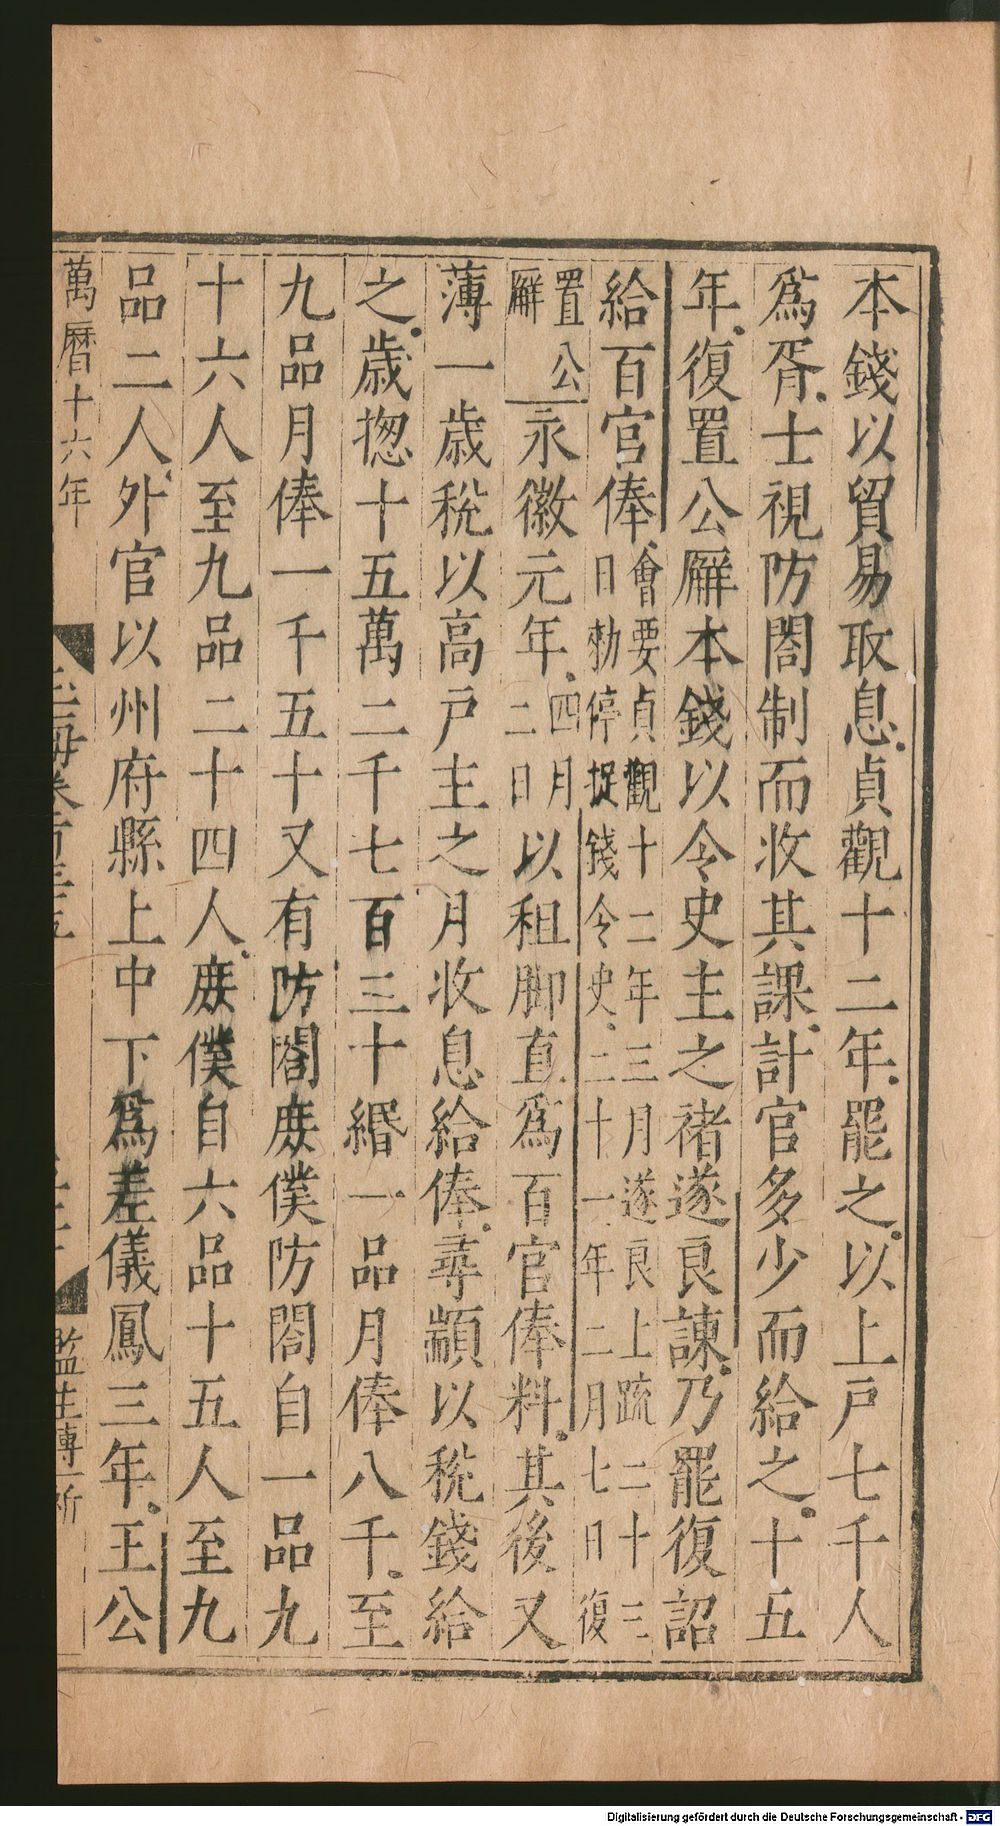 本錢以貿易取息貞觀十二年罷之以上戸七千人
爲胥士視防閤制而收其課計官多少而給之十五
年復置公廨本錢以令史主之褚遂良諫乃罷復詔
給百官俸會要貞觀十二年三月遂良上疏二十三
日勑停捉錢令史二十一年二月七日復
置公
廨永徽元年四月
二日以租脚直爲百官俸料其後又
薄一歳税以高戸主之月收息給俸尋顓以税錢給
之歳揔十五萬二千七百三十緡一品月俸八千至
九品月俸一千五十又有防閤庻僕防閤自一品九
十六人至九品二十四人庻僕自六品十五人至九
品二人外官以州府縣上中下爲差儀鳳三年王公
萬曆十六年
玉海卷百三五
監生傅一祈
Digitalisierung gefördert durch die Deutsche Forschungsgemeinschaft - DFG